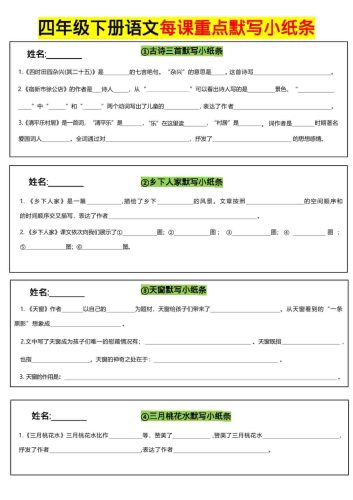 四年级下册语文每课重点默写小纸条
姓名:________ ①古诗三首默写小纸条
1.《四时田园杂兴(其二十五)》是________的七言绝句。"杂兴"的意思是____。这首诗写__________________。
2.《宿新市徐公店》的作者是___诗人____，从“____________”可以看出诗人写的是________景色，“________
____”中“____”和“____”两个动词写出了儿童的__________，表达了作者____________________________。
3.《清平乐村居》是一首词，“清平乐”是____，“乐”在这里读______，“村居”是______。词作者是______时期著名
爱国词人________。全词通过对________________，抒发了________________________的思想感情。
姓名:________ ②乡下人家默写小纸条
1.《乡下人家》是一篇________,描绘了乡下____________的风景。文章按照________________的空间顺序和
的时间顺序交叉描写，表达了作者________________________________________。
2.《乡下人家》课文依次向我们展示了①____________图；②__________图；③__________图；④________图；
⑤__________图；⑥__________图。
姓名:________ ③天窗默写小纸条
1.《天窗》作者______以自己的________为题材，天窗给孩子们带来了____________________。从天窗看到的“一条
黑影”想象成________________。
2.文中写了天窗成为孩子们唯一的慰藉情况有：________________________________。天窗既指__________，
也指______________。天窗的神奇之处在于：________________________________________。
3.天窗的作用是：________________________________________。
姓名:________ ④三月桃花水默写小纸条
1.《三月桃花水》三月桃花水比作__________等，赞美了__________,赞美了三月桃花水____________________，
抒发了作者__________________________,表达了作者__________________________。